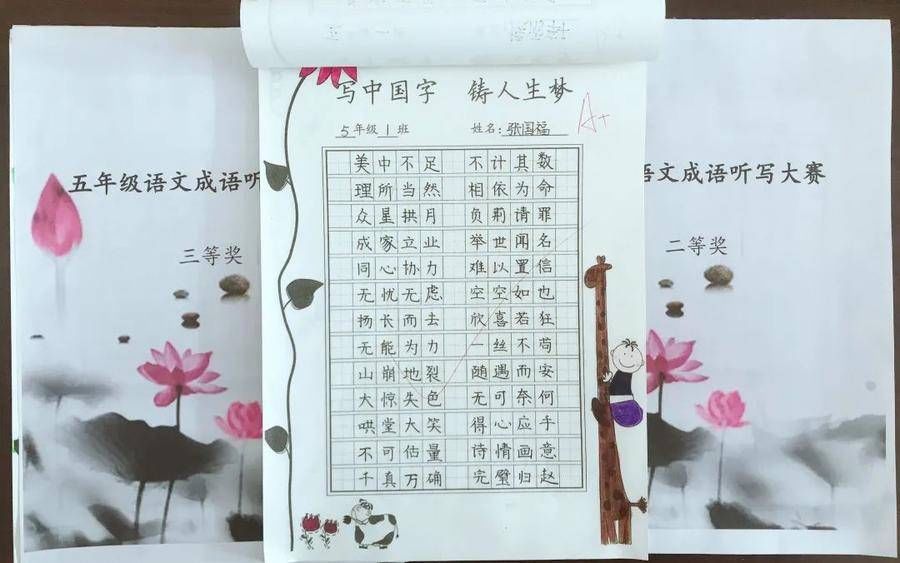 写中国字 铸人生梦
5年级1班 姓名:张国福
A+
美中不足 不计其数
理所当然 相依为命
众星拱月 负荆请罪
成家立业 举世闻名
同心协力 难以置信
无忧无虑 空空如也
扬长而去 欣喜若狂
无能为力 一丝不苟
山崩地裂 随遇而安
大惊失色 无可奈何
哄堂大笑 得心应手
不可估量 诗情画意
千真万确 完璧归赵
五年级语文成语听
三等奖
语文成语听写大赛
二等奖